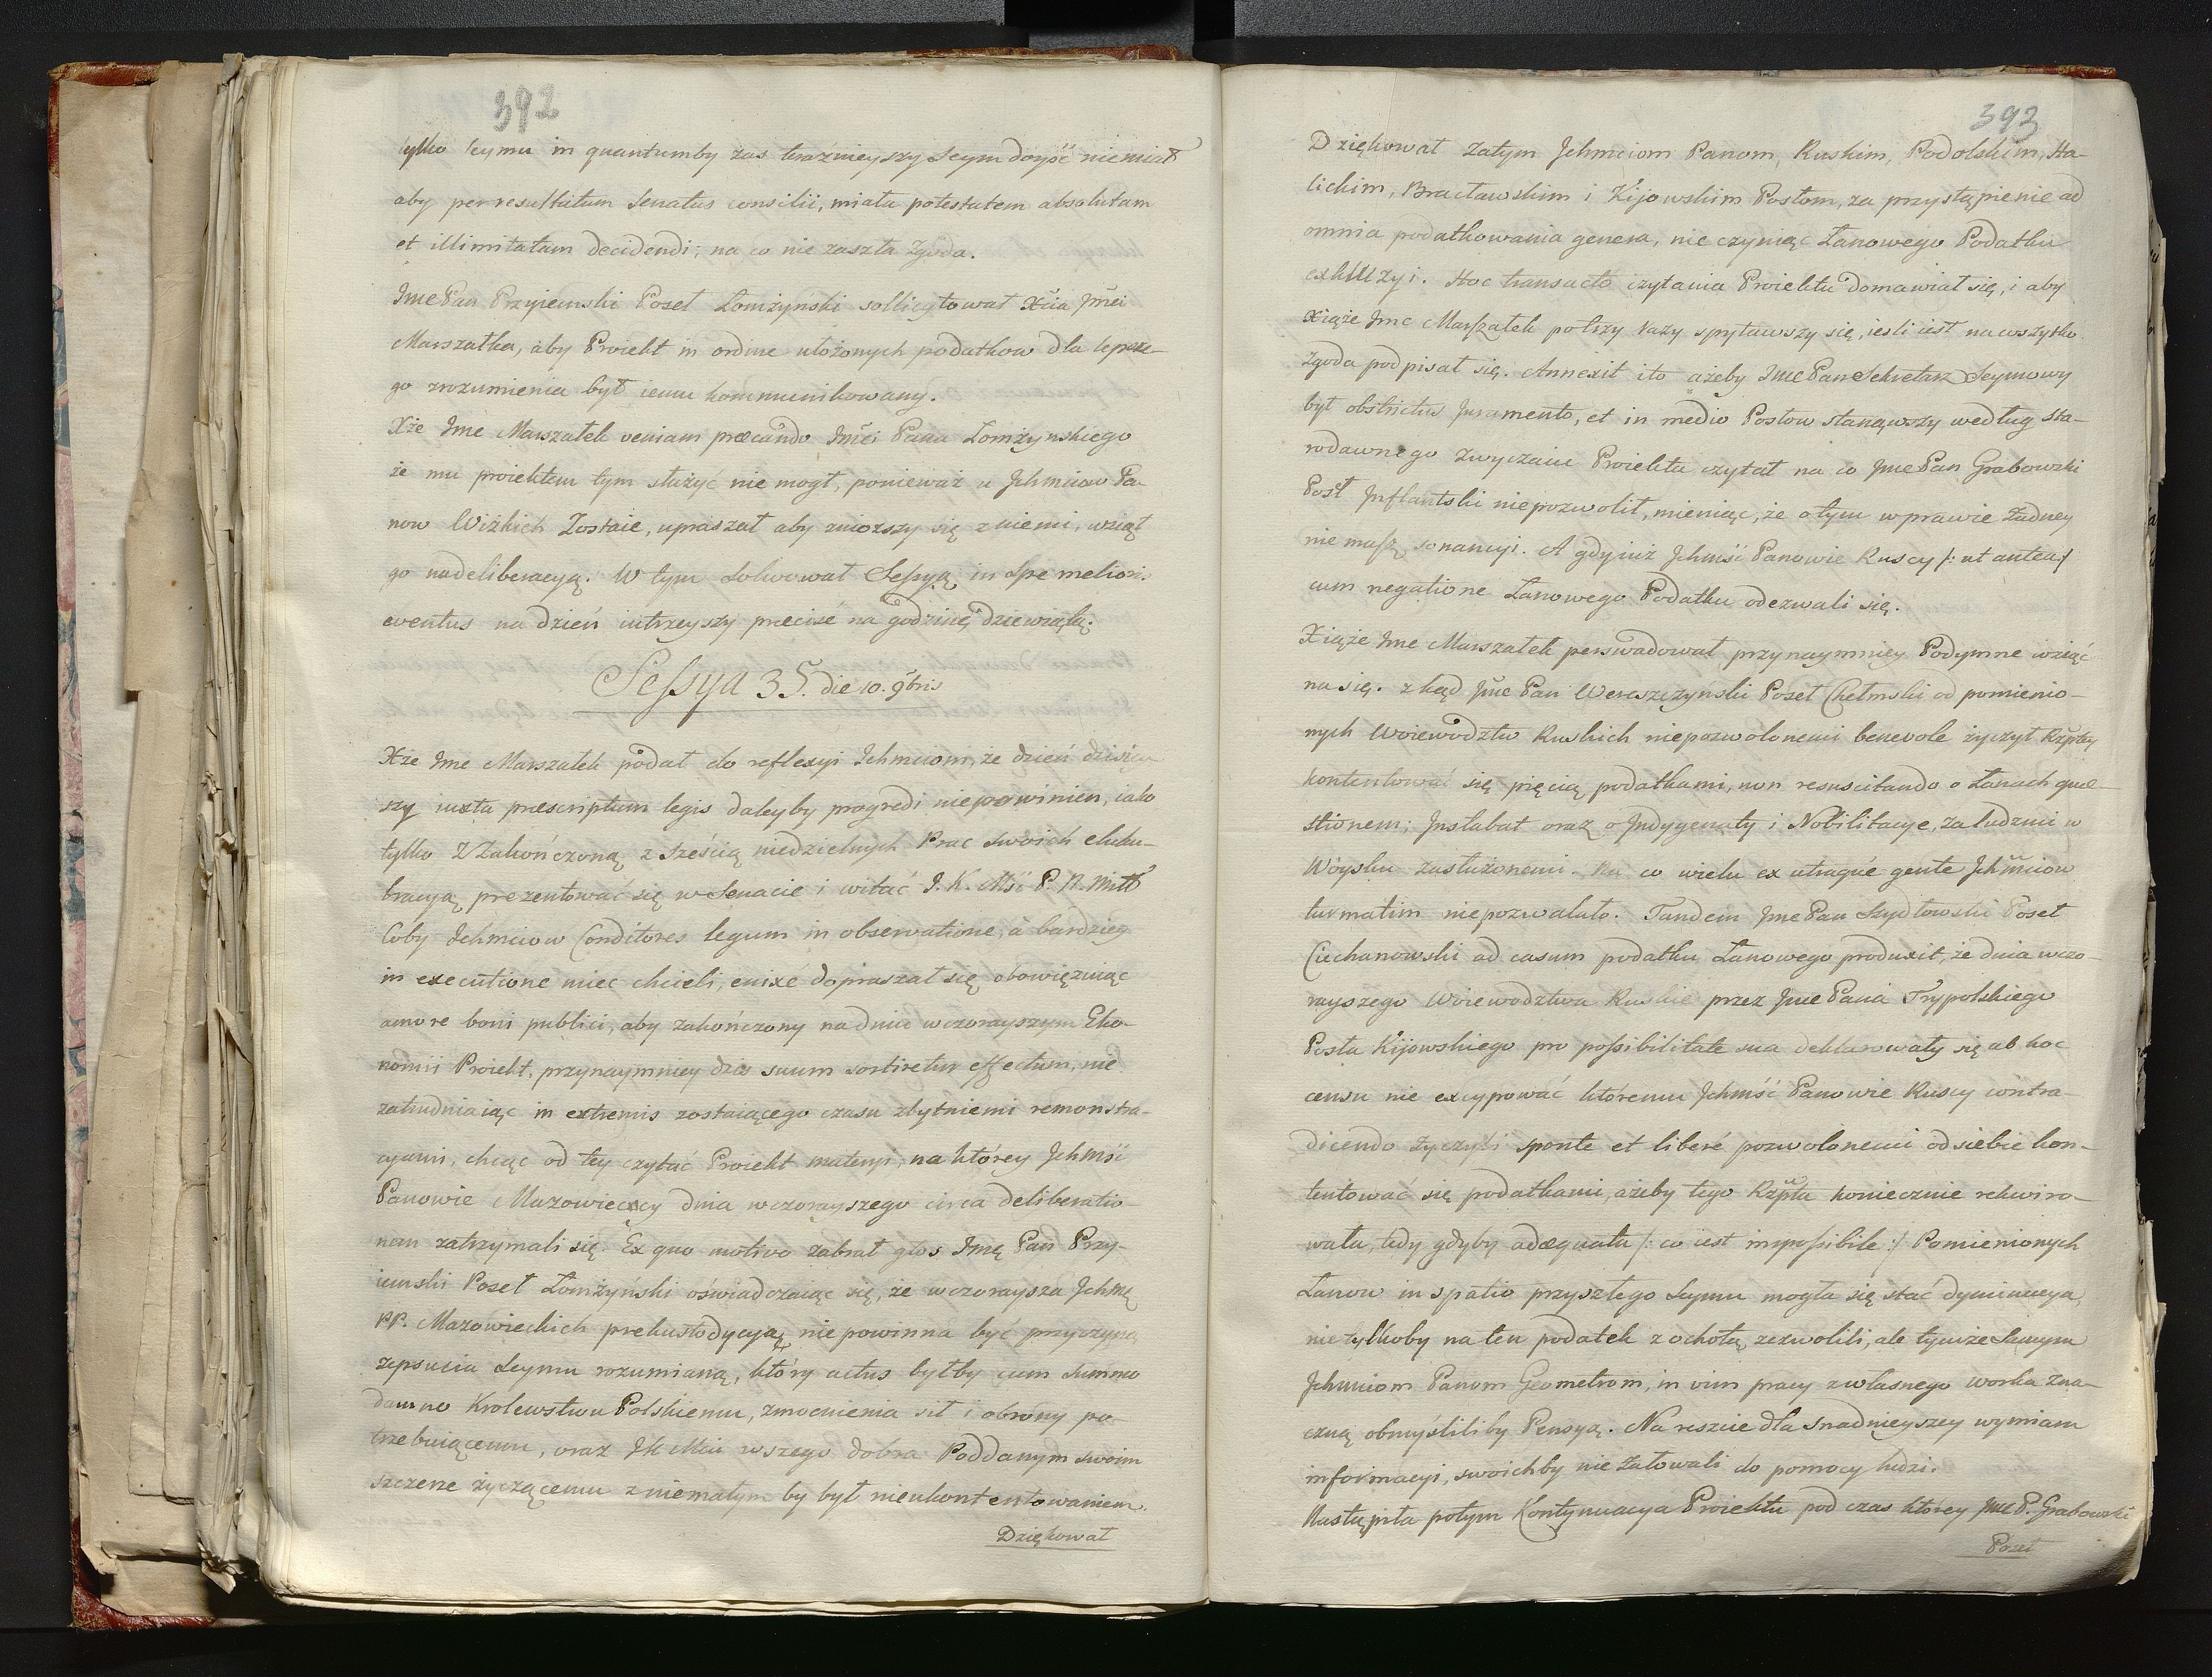 392
tylko Seymu in quantumby zas teraznieyszy Seym doyść niemiał
aby per resultatum Senatus consilii, miała potestatem absolutam
et illimitatam decidendi; na co nie zaszła zgoda.
Jme Pan Przyiemski Poseł Łomżynski sollicytował Xcia Jmci
Marszałka, aby Proiekt in ordine ułożonych podatkow dla lepsze-
go zrozumienia był iemu kommunikowany.
Xże Jmć Marszałek veniam præcando Jmci Pana Łomżynskiego
że mu proiektem tym służyć nie mogł, ponieważ u Jchmciow Pa-
now Wizkich Zostaie, upraszał aby zniozszy się z niemi, wziął
go nadeliberacyą. W tym Solwował Sessyą in Spe melioris
eventus na dzień iutrzeyszy præcise na godzinę dziewiątą.
Sessya 35. die 10. 9bris
Xże Jme Marszałek podał do reflexyi Jchmciom, że dzień dzisiey
szy iuxta præscriptum legis daleyby progredi niepowinien, iako
tylko Z Zakończoną z sześcią niedzielnych Prac swoich eluku-
bracyą prezentować się w Senacie i witać J. K. Mść P. N. Miłł
Coby Jchmciow Conditores legum in observatione, à bardziey
in executione miec chcieli, enixe dopraszał się, obowięzuiąc
amore boni publici, aby zakończony na dniu wczorayszym Eko-
nomii Proiekt, przynaymniey dzis suum sortiretur effectum, nie
zatrudniaiąc in extremis zostaiącego czasu zbytniemi remonstra-
cyami, chcąc od tey czytać Proiekt materyi, na którey Jchmść
Panowie Mazowieccy dnia wczorayszego circa deliberatio-
nem zatrzymali się. Ex quo motivo zabrał głos Jmę Pan Przy-
iemski Poseł Łomżyński oświadczaiąc się, że wczoraysza Jchmę
PP. Mazowieckich prekustodycyą, nie powinna być przyczyną
zepsucia Seymu rozumianą, który actus byłby cum summo
damno Krolewstwu Polskiemu, zmocnienia sił i obrony po-
trzebuiącemu, oraz JK Mci wszego dobra Poddanym swoim
szczerze życzącemu z niemałym by był nieukontentowaniem.
Dziękował
393
Dziękował zatym Jchmciom Panom, Ruskim, Podolskim, Ha-
lickim, Bracławskim i Kijowskim Posłom, za przystąpienie ad
omnia podatkowania genera, nie czyniąc Łanowego Podatku
exkluzyi. Hoc transacto czytania Proiektu domawiał się, i aby
Xiąże Jmc Marszałek potrzy razy spytawszy się, iesli iest na wszytko
zgoda podpisał się. Annexit ito ażeby Jme Pan Sekretarz Seymowy
był obstrictus Juramento, et in medio Posłow stanąwszy według sta-
rodawnego zwyczaiu Proiektu czytał na co Jme Pan Grabowski
Poseł Jnflantski niepozwolił, mieniąc, że o tym w prawie żadney
nie masz sonancyi. A gdy iuż Jchmść Panowie Ruscy /: ut antea /
cum negatione Łanowego Podatku odezwali się.
Xiąże Jme Marszałek perswadował przynaymniey Podymne wziąć
na się. zkąd Jme Pan Wereszczyński Poseł Chełmski od pomienio-
nych Woiewodztw Ruskich niepozwolonemi benevole życzył Rzptey
kontentować się pięcią podatkami, non resuscitando o Łanach quæ-
stionem; Jnstabat oraz o Jndygenaty i Nobilitacye, za ludzmi w
Woysku zasłużonemi. Na co wielu ex utraque gente Jchmciow
turmatim niepozwalało. Tandem Jme Pan Szydłowski Poseł
Ciechanowski ad casum podatku Łanowego produxit, że dnia wczo-
rayszego Woiewodztwa Ruskie przez Jme Pana Trypolskiego
Posła Kijowskiego pro possibilitate sua deklarowały się ab hoc
censu nie excypować któremu Jchmść Panowie Ruscy contra-
dicendo życzyli sponte et liberé pozwolonemi od siebie kon-
tentować się podatkami, ażeby tego Rzpta koniecznie rekwiro-
wała, tedy gdyby adæquata /: co iest impossibile :/ Pomienionych
Łanow in spatio przyszłego Seymu mogła się stać dymincya,
nie tylkoby na ten podatek z ochotą zezwolili, ale tymże Samym
Jchmciom Panom Geometrom, in vim pracy z własnego worka zna-
czną obmyśliliby Pensyą. Na reszcie dla snadnieyszey wymiaru
informacyi, swoichby nie żałowali do pomocy ludzi.
Nastąpiła potym Kontynuacya Proiektu pod czas ktorey Jme P. Grabowski
Poseł